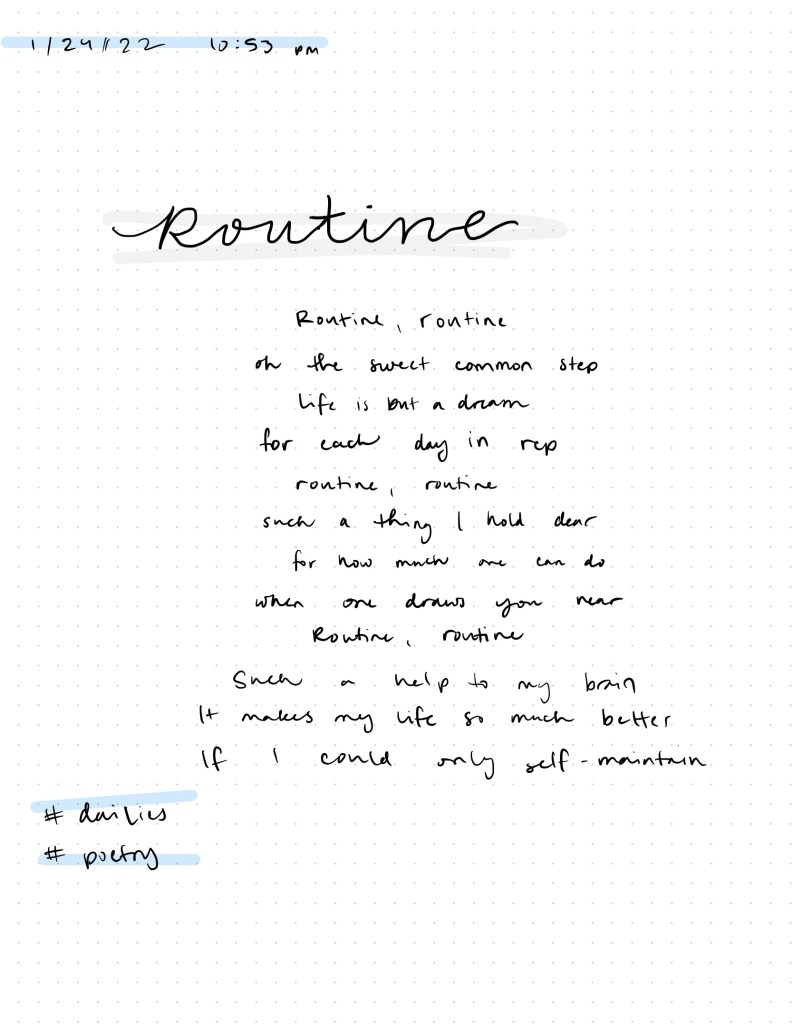 1/24/22 10:53 pm
Routine
Routine, routine
oh the sweet common step
Life is but a dream
for each day in rep
routine, routine
such a thing I hold dear
for how much one can do
when one draws you near
Routine, routine
Such a help to my brain
It makes my life so much better
If I could only self-maintain
# dailies
# poetry